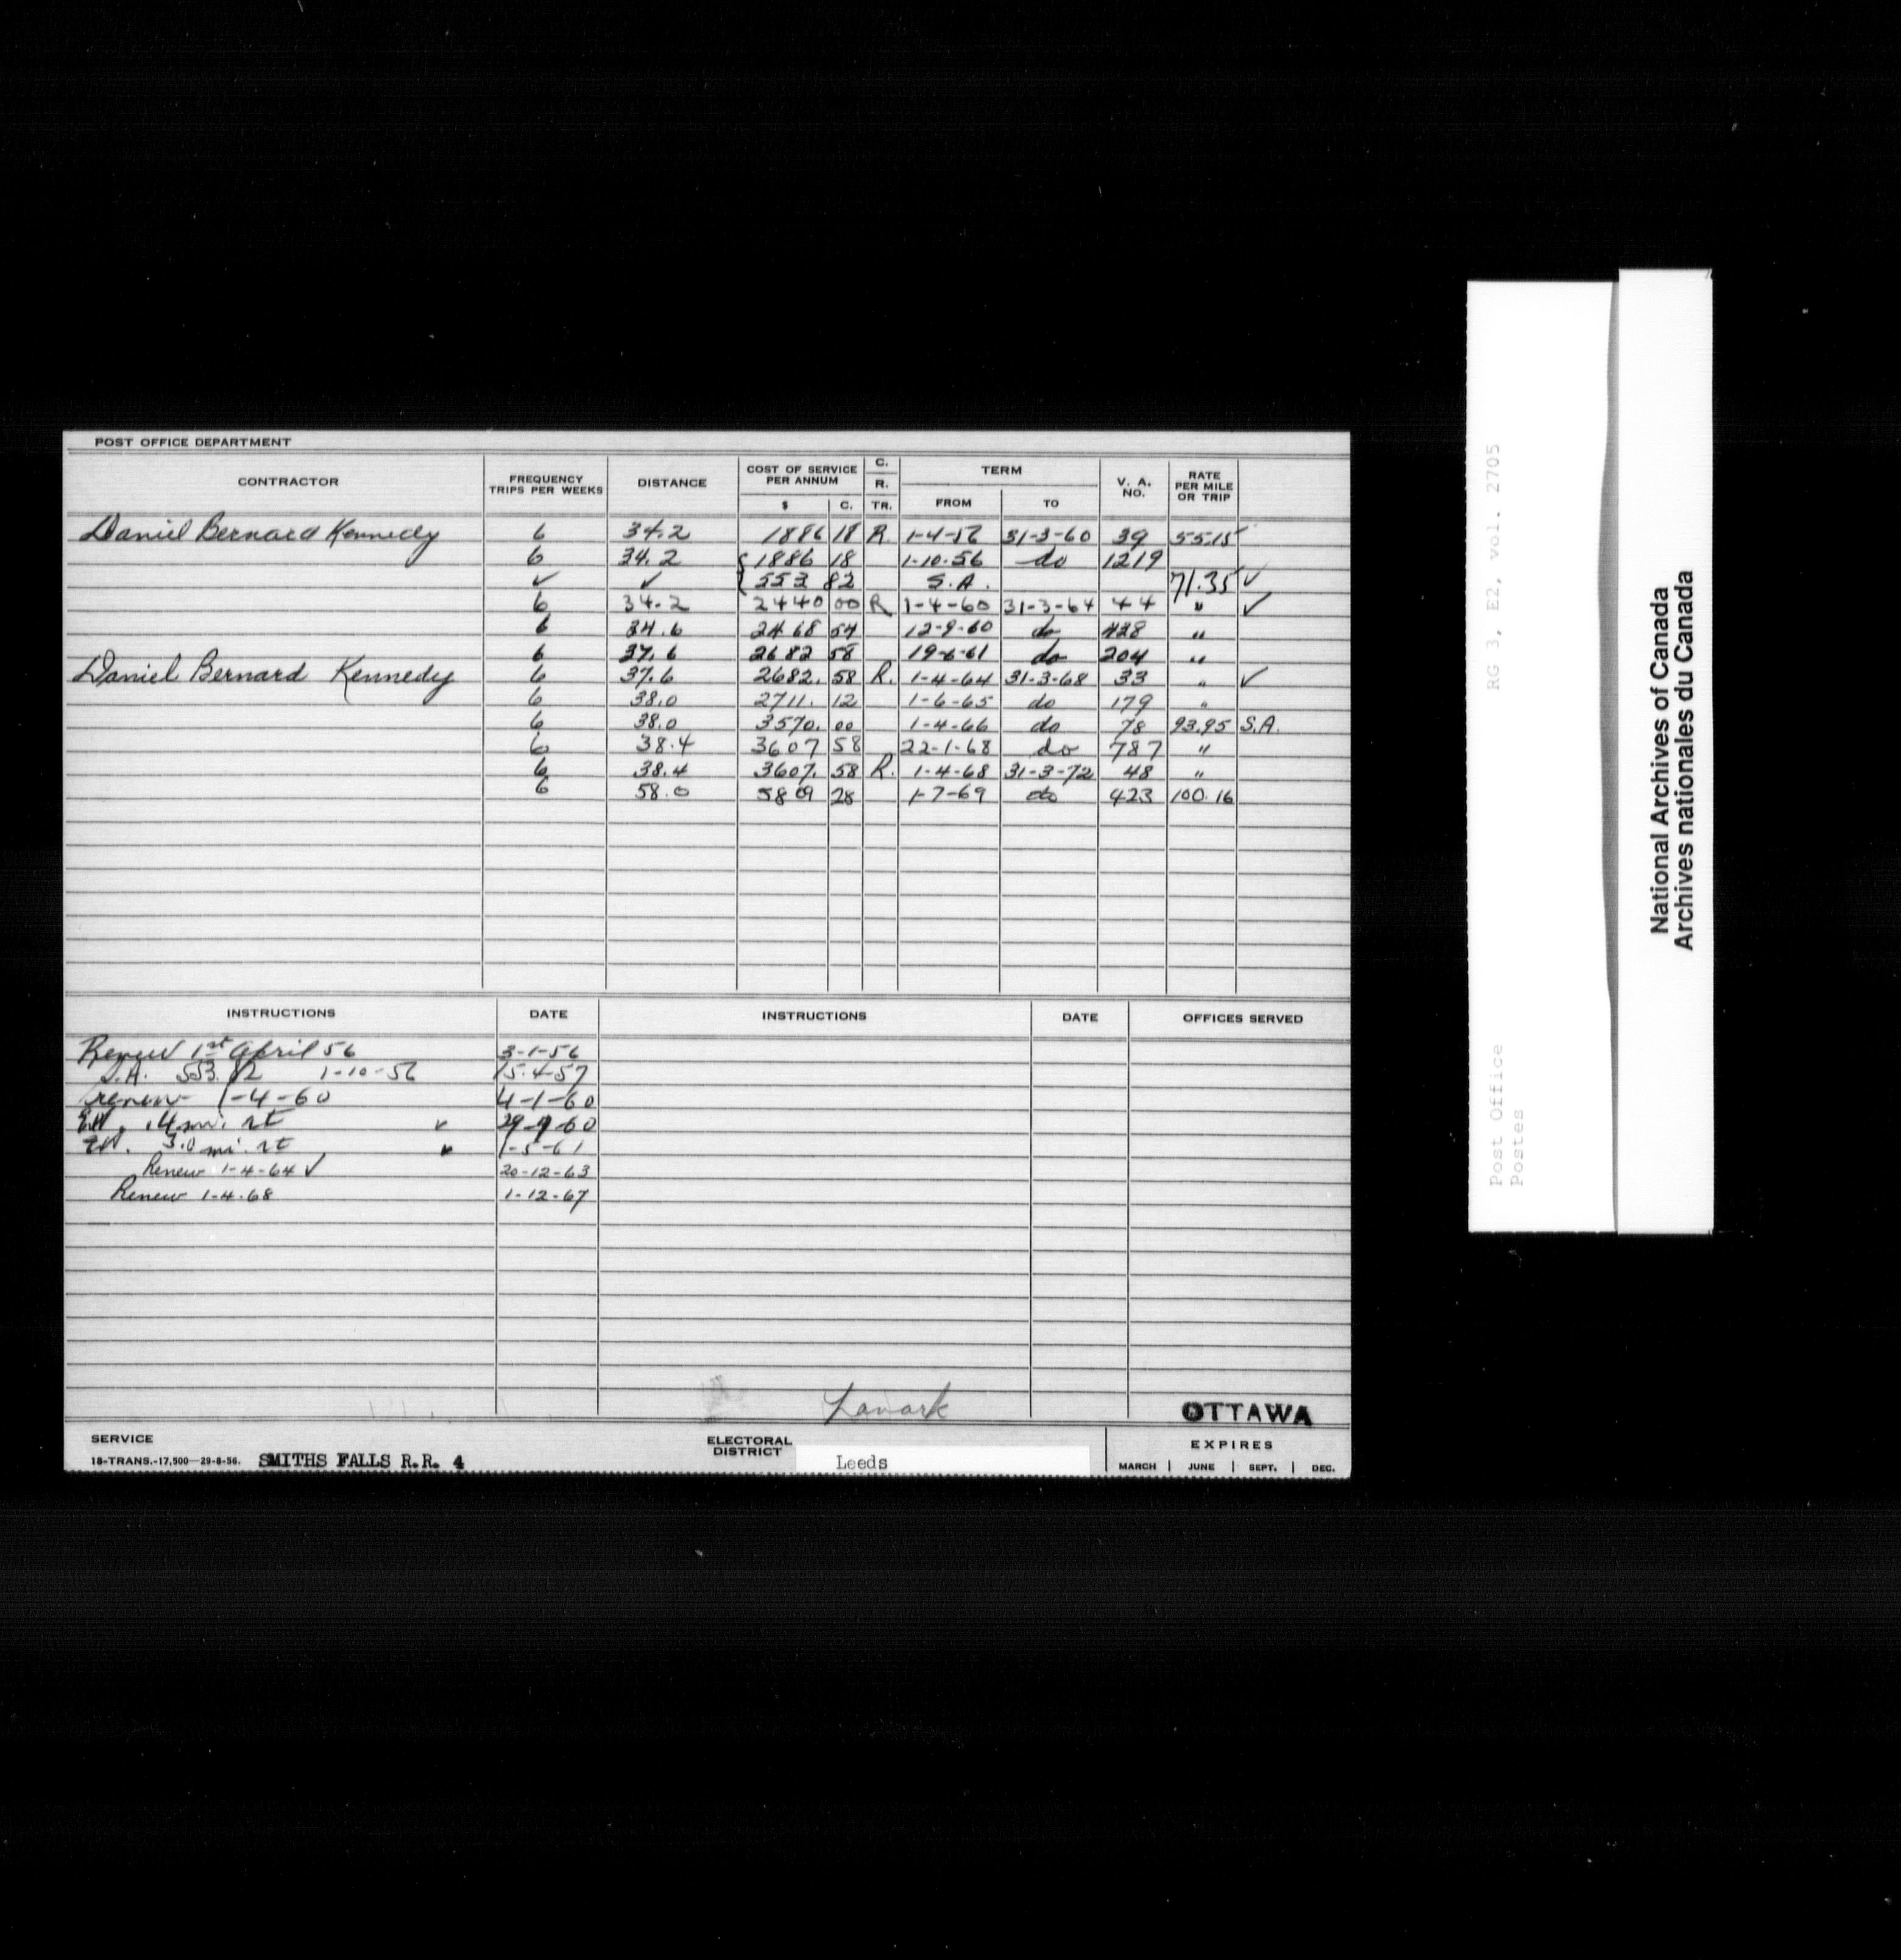 POST OFFICE DEPARTMENT
CONTRACTOR FREQUENCY TRIPS PER WEEKS DISTANCE COST OF SERVICE PER ANNUM $ C. C. R. TR. TERM FROM TO V. A. NO. RATE PER MILE OR TRIP
Daniel Bernard Kennedy 6 34.2 1886 18 R. 1-4-56 31-3-60 39 55.15 ✓
6 34.2 { 1886 18 1-10-56 do 1219
✓ ✓ { 553 82 S.A. 71.35 ✓
6 34.2 2440 00 R 1-4-60 31-3-64 44 " ✓
6 34.6 2468 54 12-9-60 do 428 "
6 37.6 2682 58 19-6-61 do 204 "
Daniel Bernard Kennedy 6 37.6 2682. 58 R. 1-4-64 31-3-68 33 " ✓
6 38.0 2711. 12 1-6-65 do 179 "
6 38.0 3570. 00 1-4-66 do 78 93.95 S.A.
6 38.4 3607 58 22-1-68 do 787 "
6 38.4 3607. 58 R. 1-4-68 31-3-72 48 "
6 58.0 5809 28 1-7-69 do 423 100.16
INSTRUCTIONS DATE INSTRUCTIONS DATE OFFICES SERVED
Renew 1st April 56 3-1-56
S.A. 553.82 1-10-56 15-4-57
renew 1-4-60 4-1-60
Ext. .4 mi. rt ✓ 29-9-60
Ext. 3.0 mi. rt 1-5-61
Renew 1-4-64 ✓ 20-12-63
Renew 1-4-68 1-12-67
Lanark
OTTAWA
SERVICE
18-TRANS.-17,500—29-8-56. SMITHS FALLS R.R. 4
ELECTORAL DISTRICT Leeds
EXPIRES
MARCH | JUNE | SEPT. | DEC.
RG 3, E2, vol. 2705
Post Office
Postes
National Archives of Canada
Archives nationales du Canada